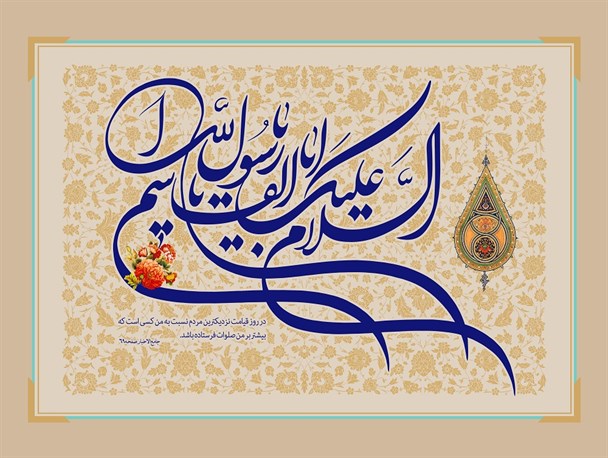 السلام علیک یا اباالقاسم یا رسول الله
در روز قیامت نزدیکترین مردم نسبت به من کسی است که
بیشتر بر من صلوات فرستاده باشد.
جامع الاخبار صفحه ۶۹